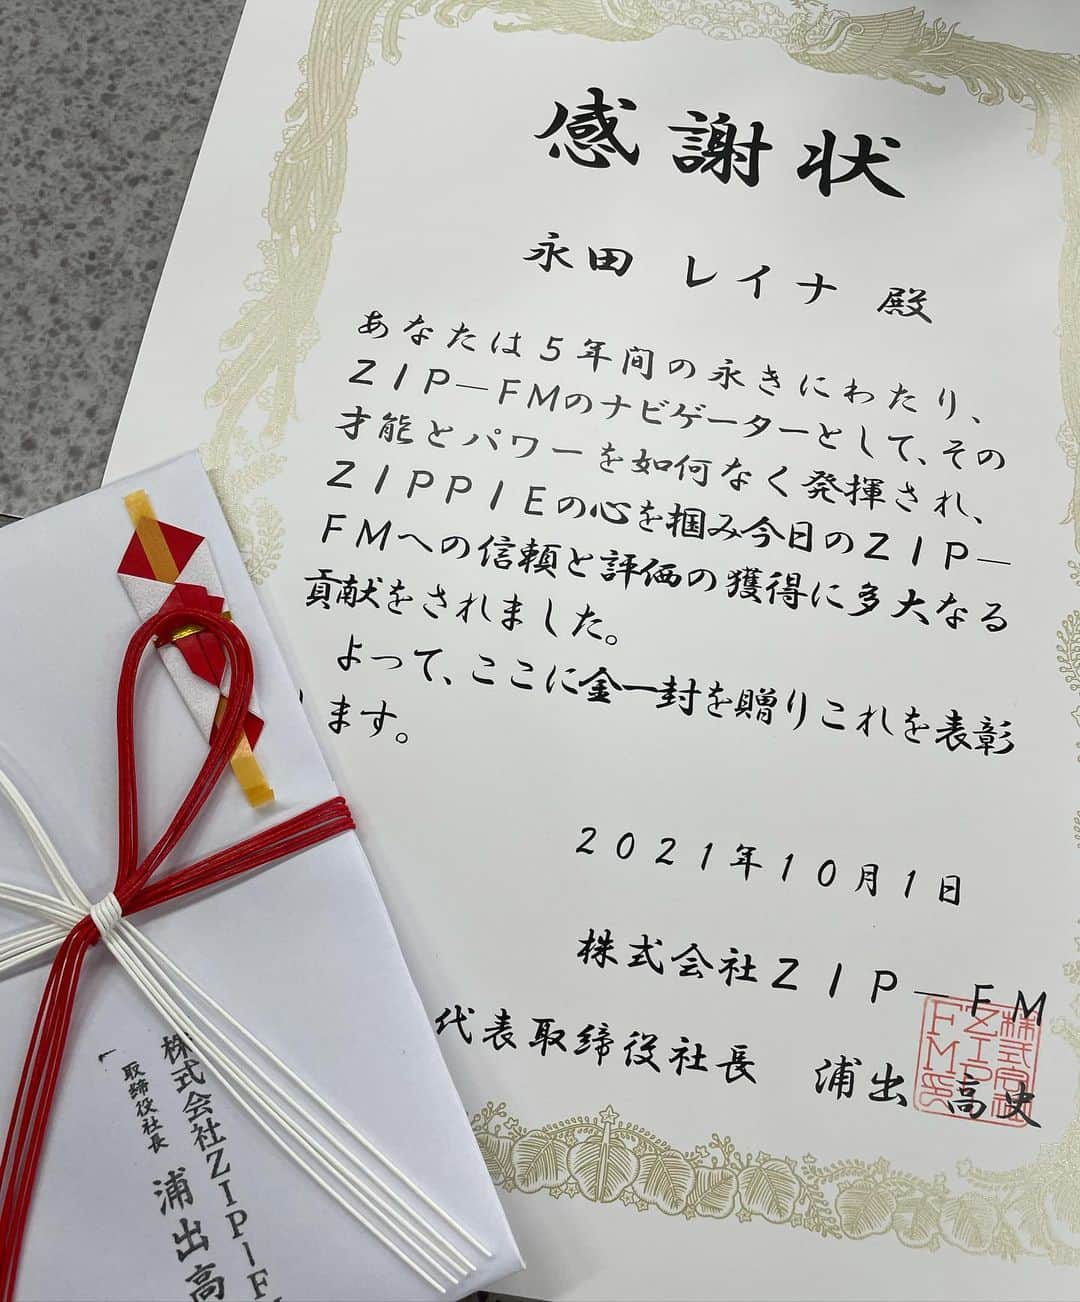 感謝状
永田 レイナ 殿
あなたは5年間の永きにわたり、
ZIP―FMのナビゲーターとして、その
才能とパワーを如何なく発揮され、
ZIPPIEの心を掴み今日のZIP―
FMへの信頼と評価の獲得に多大なる
貢献をされました。
よって、ここに金一封を贈りこれを表彰
します。
2021年10月1日
株式会社ZIP―FM
代表取締役社長 浦出 高史
株式会社
ZIP
FM
株式会社ZIP-F
取締役社長 浦出高